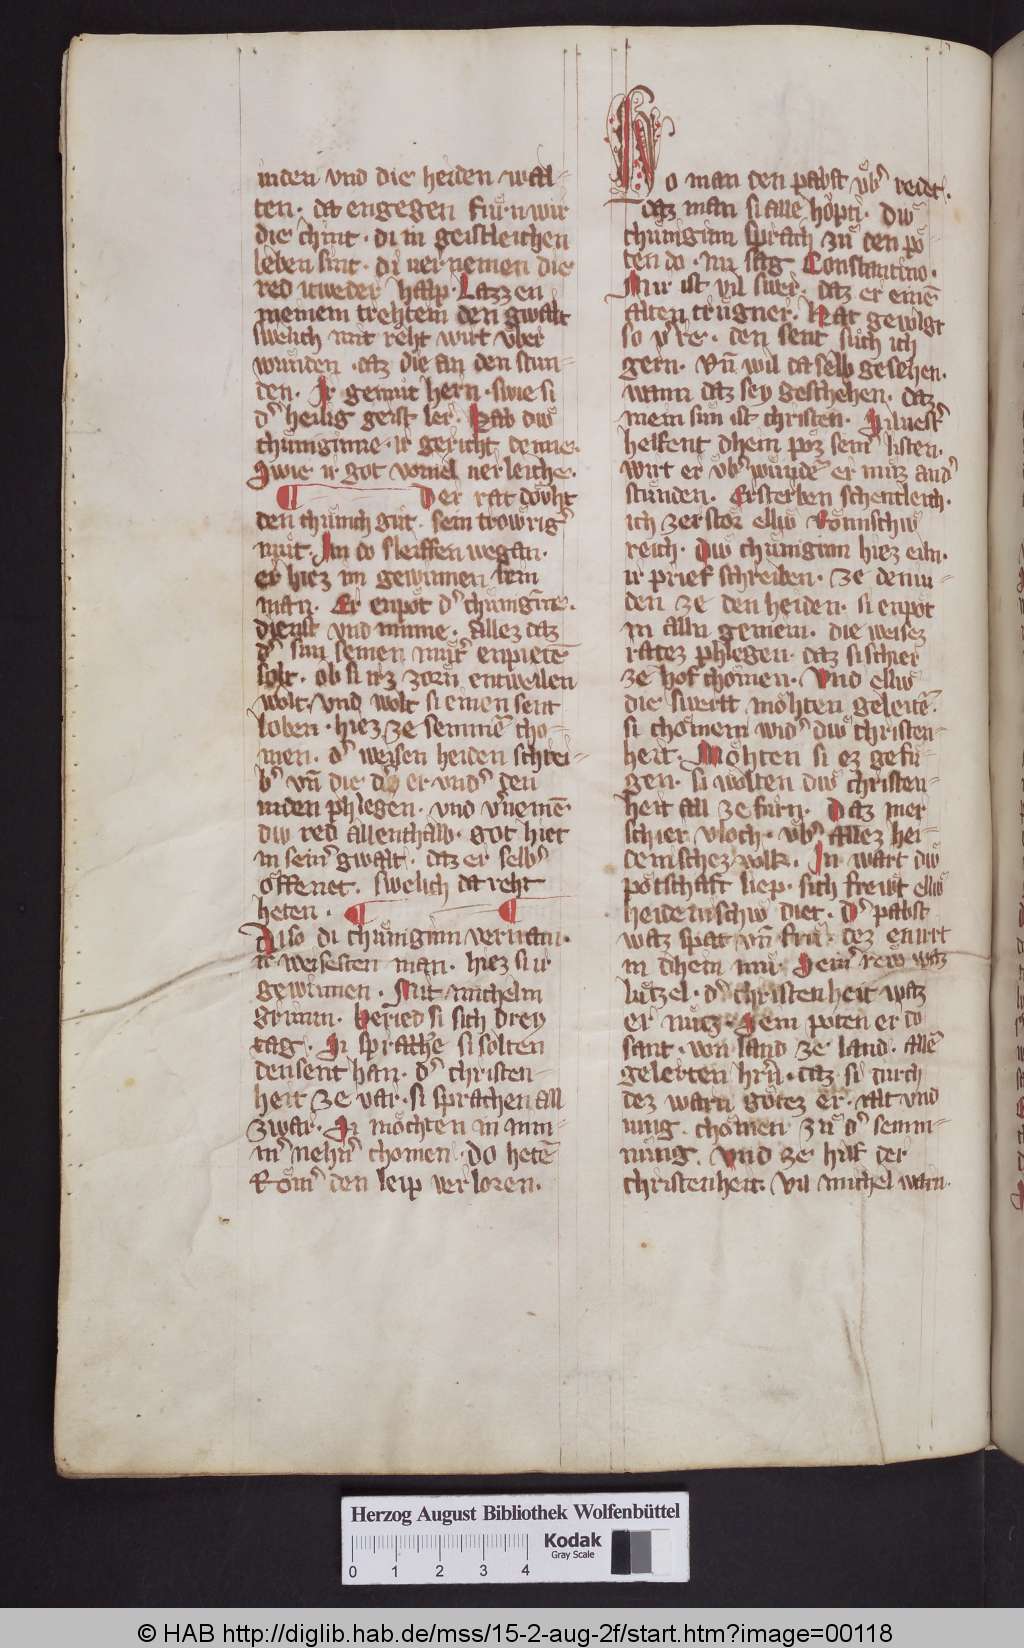 inden vnd die heiden wal-
ten · da engegen fuͤrn wir
die chint · di in geistleichen
leben sint · di vernemen die
red itweder halp · Lazzen
meinem trehtein den gwalt
swelich mit reht wirt vber
wunden · daz die an den stun-
den · Ir gemut hern · swie si
d' heilig geist ler · Hab diw
chuͤniginne · ir gericht denne ·
Swie ir got vornel
¶ Der rat douht
den chuͤnich guͤt · sein trowrig'
muͤt · Im do sleiffen wegan ·
er hiez im gewinnen sein
man · Er enpot d' chuͤnigine ·
dienst vnd minne · Allez daz
d' sun seinen muͤt' enpieten
solt · ob si irz zorn entweilen
wolt · vnd wolt si einen sent
loben · hiez ze semmē cho-
men · d' weisen heiden schrei-
b' vn̄ die d' er vnd' den
iuden phlegen · vnd v'nemē ·
diw red allenthalb · got hiet
in sein' gwalt · daz er selb'
offenet · swelich da reht
heten · ¶ ¶
Also di chuͤnginn vernam ·
ir weisesten man · hiez si ir
gewinnen · Mit michelm
grimm · Beried si sich drey
tag · Ir sprache si solten
den sent han · d' christen-
heit ze var · si sprachen all
zwar · Ir moͤchten in nim-
m' nehn' chomen · Do hetē
Roͤm' den leip verloren ·
Do man den pabst vb' reidt ·
daz man si alle hoͤpti · diw
chuͤniginn sprach zuͤ den po-
ten do · Nu sag Constantino ·
Mir ist vil swer · daz er einē
alten truͤgner · Hat gewolgt
so v're · den sent such ich
gern · vn̄ wil da selb gesehen ·
wann daz sey geschehen · daz
mein sun ist christen · Siluest'
helfent dhein poz sein' listen ·
wirt er vb' wundē er muͤz and'
stunden · Ersterben schentleich ·
ich zerstoͤr elliw Roͤmischiw
reich · Diw chuͤniginn hiez eiln ·
ir prief schreiben · ze den iu-
den ze den heiden · si enpot
in alln gemein · die weisez
ratez phlegen · daz si schier
ze hof choͤmen · Vnd elliw
die swertt moͤhten geleitē ·
si choͤmem wid' diw christen-
heit · Moͤhten si ez gefuͤ-
gen · si wolten diw christen-
heit all zefuͤrn · Daz mer
schier vloch · vb' allez hei-
denischez volk · In wart diw
potschaft liep · sich frewt elliw
heidenischiw diet · D' pabst
waz spat vn̄ fruͤ · dez enirrt
in dhein muͤ · Sein' rew waz
luͤtzel · d' christenheit waz
er nuͤtz · Sein poten er do
sant · von land ze land · allē
gelerten hrn · daz si durch
dez warn gotez er · alt vnd
iung · choͤmen zuͤ d' semm-
nung · Vnd ze hilf der
christenheit · Vil michel warn ·
Herzog August Bibliothek Wolfenbüttel
Kodak
Gray Scale
0 1 2 3 4
© HAB http://diglib.hab.de/mss/15-2-aug-2f/start.htm?image=00118